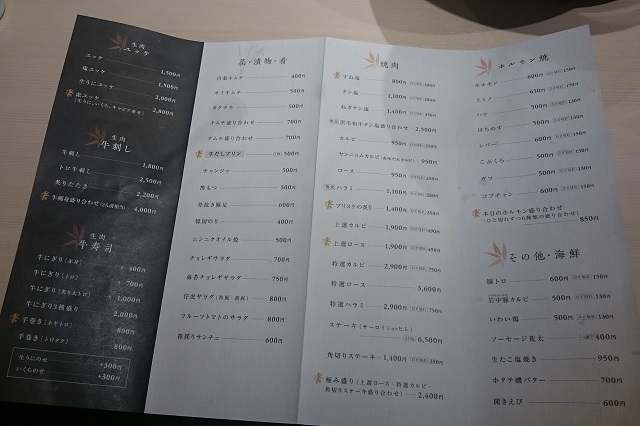 生肉
ユッケ
ユッケ 1,500円
塩ユッケ 1,500円
生うにユッケ 2,000円
2,800円
生肉
牛刺し
牛刺し 1,800円
トロ刺し 2,500円
炙りたたき 2,200円
4,000円
生肉
牛寿司
牛にぎり(赤身) 400円
牛にぎり(トロ) 700円
牛にぎり(炙り大トロ) 1,000円
牛にぎり3種盛り 2,000円
手巻き(ネギトロ) 800円
手巻き(トロタク) 800円
生うにのせ +300円
いくらのせ +300円
菜・漬物・肴
白菜キムチ 400円
オイキムチ 500円
カクテキ 500円
キムチ盛り合わせ 700円
ナムル盛り合わせ 700円
牛だしプリン 500円
チャンジャ 500円
酢もつ 500円
骨抜き豚足 600円
韓国のり 400円
ニンニクオイル焼 500円
チョレギサラダ 700円
海苔チョレギサラダ 750円
800円
フルーツトマトのサラダ 800円
株採りサンチュ 600円
焼肉
すね塩 800円
タン塩 1,100円
ねぎタン塩 1,200円
黒毛和牛タン塩盛り合わせ 2,500円
カルビ 950円
ヤンニョムカルビ 950円
ロース 950円
ハラミ 1,100円
ブリスケの炙り 1,400円
上選カルビ 1,900円
上選ロース 1,900円
特選カルビ 2,900円
特選ロース 3,600円
特選ハラミ 2,900円
ステーキ(サーロインorヒレ) 6,500円
角切りステーキ 1,400円
極み盛り(上選ロース・特選カルビ・
角切りステーキ盛り合わせ) 2,400円
ホルモン焼
ホルモン 600円
ミミノ 650円
ハツ 500円
はちのす 500円
レバー 600円
こぶくろ 500円
ガツ 500円
コプチャン 600円
本日のホルモン盛り合わせ
(ひと切れずつ6種類の盛り合わせ) 850円
その他・海鮮
豚トロ 600円
岩中豚カルビ 500円
いわい鶏 500円
ソーセージ荒太 400円
生たこ塩焼き 950円
ホタテ磯バター 700円
開きえび 600円